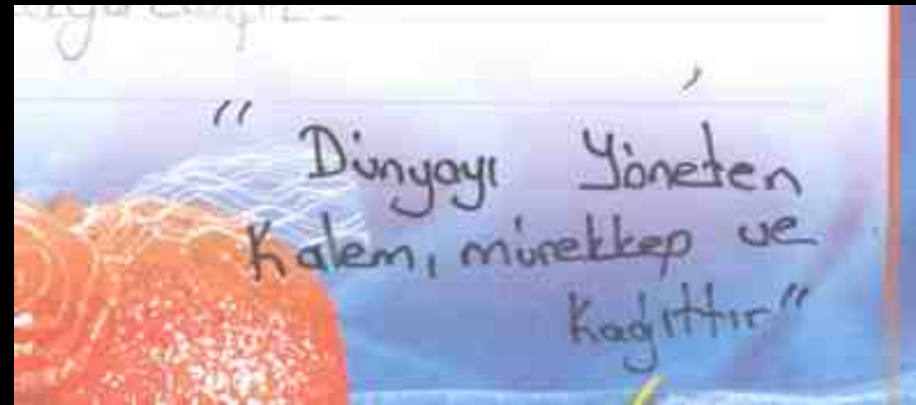 " Dünyayı Yöneten
Kalem, mürekkep ve
Kağıttır"